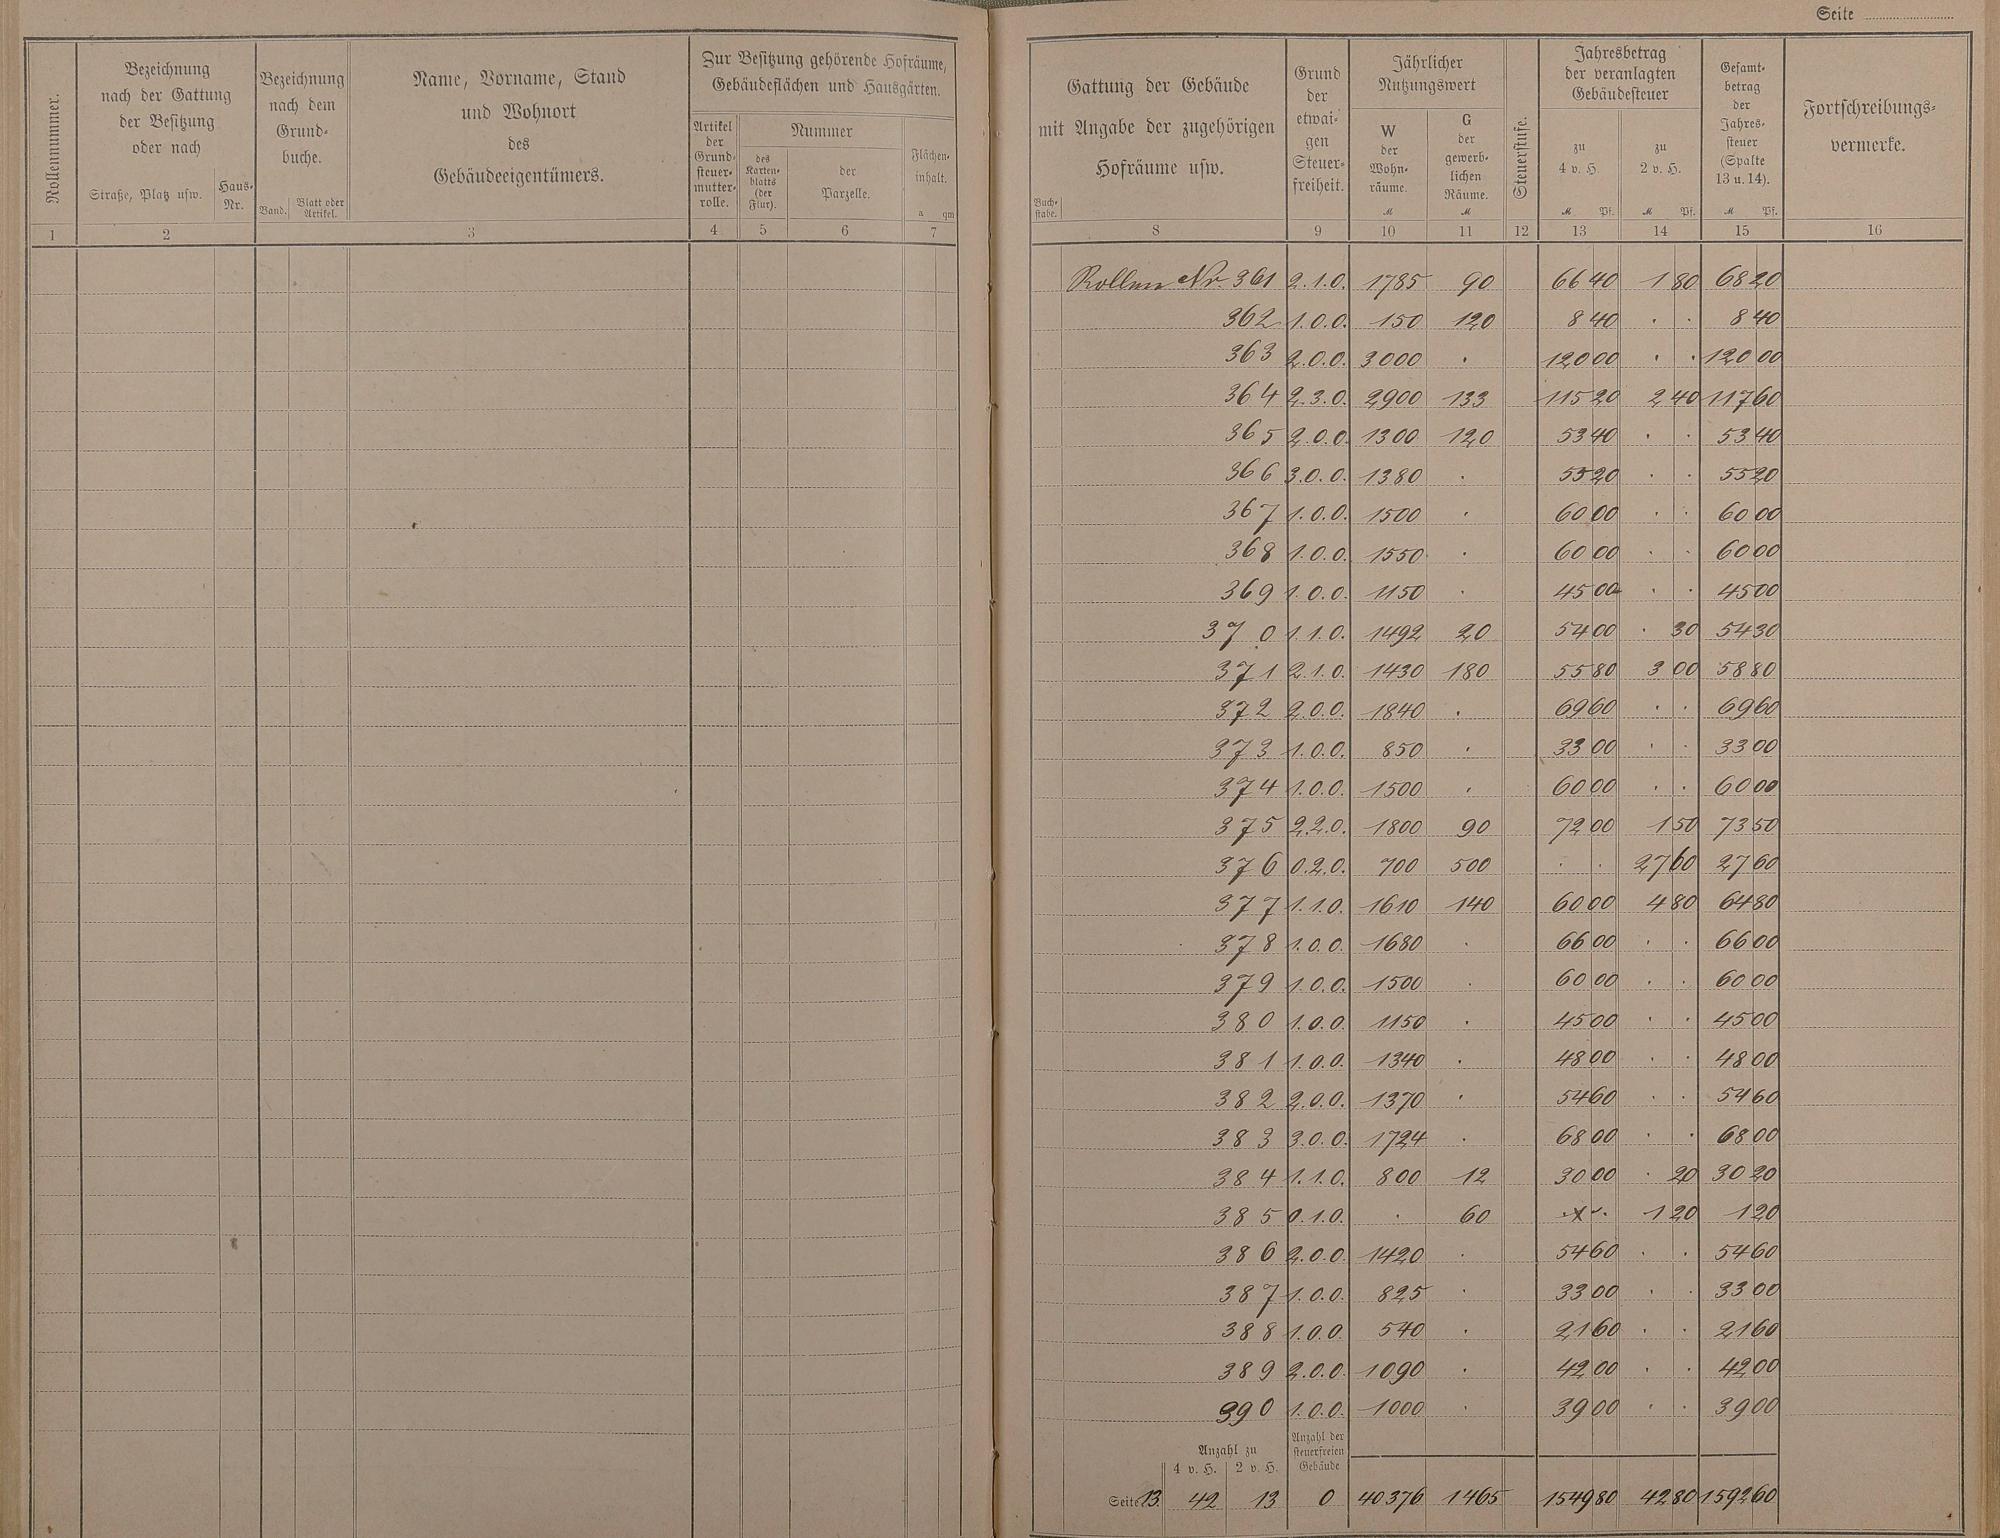 Seite
Rollennummer.
Bezeichnung
nach der Gattung
der Besitzung
oder nach
Straße, Platz usw.
Haus-
Nr.
Bezeichnung
nach dem
Grund-
buche.
Band.
Blatt oder
Artikel.
Name, Vorname, Stand
und Wohnort
des
Gebäudeeigentümers.
Zur Besitzung gehörende Hofräume,
Gebäudeflächen und Hausgärten.
Artikel
der
Grund-
steuer-
mutter-
rolle.
Nummer
des
Karten-
blatts
(der
Flur).
der
Parzelle.
Flächen-
inhalt.
a qm
1 2 3 4 5 6 7
Gattung der Gebäude
mit Angabe der zugehörigen
Hofräume usw.
Buch-
stabe.
Grund
der
etwai-
gen
Steuer-
freiheit.
Jährlicher
Nutzungswert
W
der
Wohn-
räume.
M
G
der
gewerb-
lichen
Räume.
M
Steuerstufe.
Jahresbetrag
der veranlagten
Gebäudesteuer
zu
4 v. H.
M Pf.
zu
2 v. H.
M Pf.
Gesamt-
betrag
der
Jahres-
steuer
(Spalte
13 u. 14).
M Pf.
Fortschreibungs-
vermerke.
8 9 10 11 12 13 14 15 16
Rollen Nr. 361 2.1.0. 1785 90 66 40 1 80 68 20
362 1.0.0. 150 120 8 40 . . 8 40
363 2.0.0. 3000 . 120 00 . . 120 00
364 2.3.0. 2900 133 115 20 2 40 117 60
365 2.0.0. 1300 120 53 40 . . 53 40
366 3.0.0. 1380 . 55 20 . . 55 20
367 1.0.0. 1500 . 60 00 . . 60 00
368 1.0.0. 1550 . 60 00 . . 60 00
369 1.0.0. 1150 . 45 00 . . 45 00
370 1.1.0. 1492 20 54 00 . 30 54 30
371 2.1.0. 1430 180 55 80 3 00 58 80
372 2.0.0. 1840 . 69 60 . . 69 60
373 1.0.0. 850 . 33 00 . . 33 00
374 1.0.0. 1500 . 60 00 . . 60 00
375 2.2.0. 1800 90 72 00 1 50 73 50
376 0.2.0. 700 500 . . 27 60 27 60
377 1.1.0. 1610 140 60 00 4 80 64 80
378 1.0.0. 1680 . 66 00 . . 66 00
379 1.0.0. 1500 . 60 00 . . 60 00
380 1.0.0. 1150 . 45 00 . . 45 00
381 1.0.0. 1340 . 48 00 . . 48 00
382 2.0.0. 1370 . 54 60 . . 54 60
383 3.0.0. 1724 . 68 00 . . 68 00
384 1.1.0. 800 12 30 00 . 20 30 20
385 0.1.0. . 60 . . 1 20 1 20
386 2.0.0. 1420 . 54 60 . . 54 60
387 1.0.0. 825 . 33 00 . . 33 00
388 1.0.0. 540 . 21 60 . . 21 60
389 2.0.0. 1090 . 42 00 . . 42 00
390 1.0.0. 1000 . 39 00 . . 39 00
Anzahl zu
4 v. H. 2 v. H.
Anzahl der
steuerfreien
Gebäude
Seite 13 42 13 0 40376 1465 1549 80 42 80 1592 60